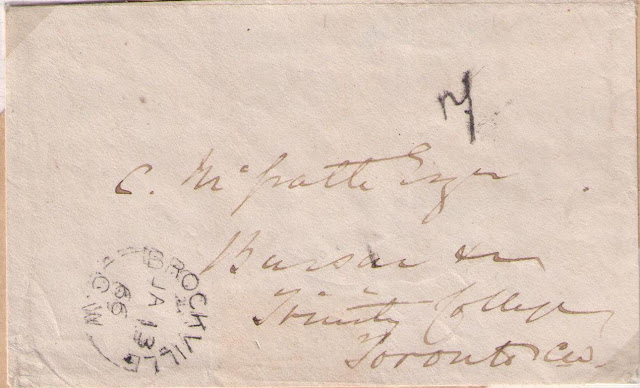 7
C. McGrath Esqr
Bursar &c
Trinity College
Toronto CW
BROCKVILLE
JA 13
66
C.W.